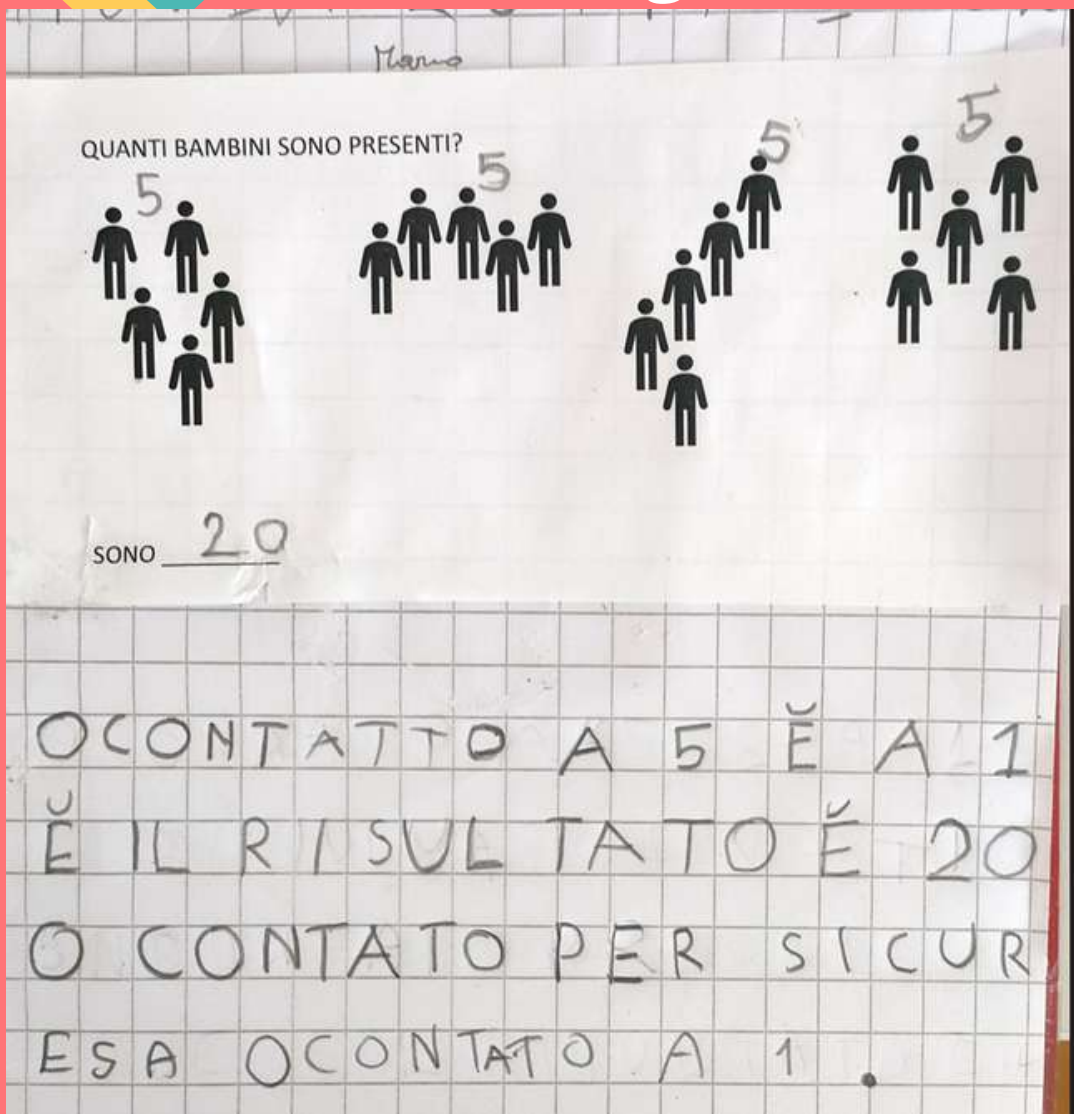 Marco
QUANTI BAMBINI SONO PRESENTI?
5 5 5 5
SONO 20
OCONTATTO A 5 Ĕ A 1
Ĕ IL RISULTATO Ĕ 20
O CONTATO PER SICUR
ESA OCONTATO A 1.